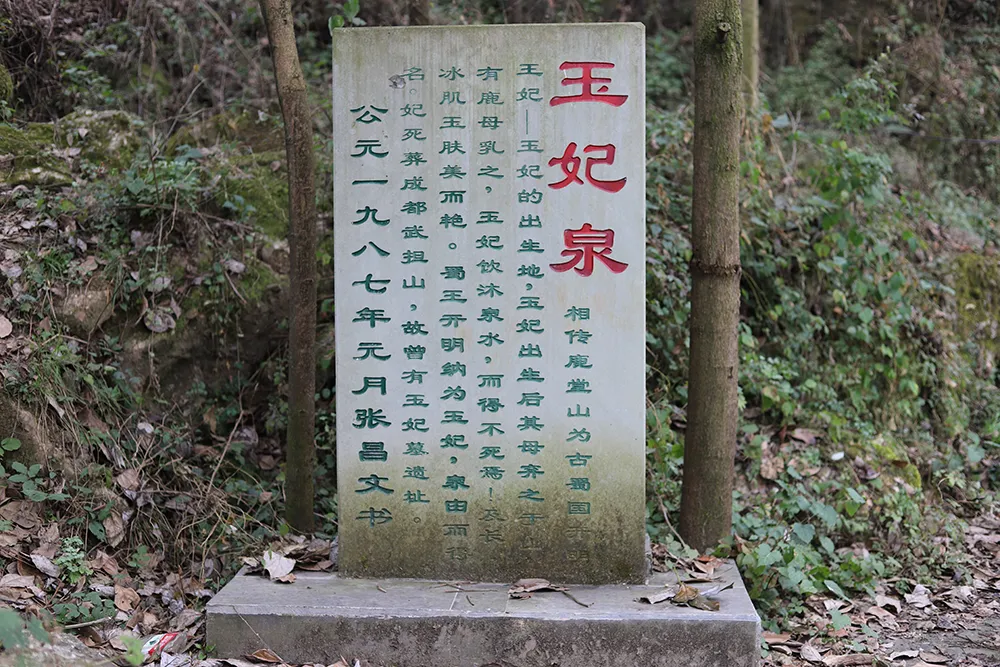 玉妃泉
相传鹿堂山为古蜀国开明
王妃—玉妃的出生地,玉妃出生后其母弃之于
有鹿母乳之,玉妃饮沐泉水,而得不死焉!长,
冰肌玉肤美而艳。蜀王开明纳为玉妃,泉由而得
名。妃死葬成都武担山,故曾有玉妃墓遗址。
公元一九八七年元月张昌文书